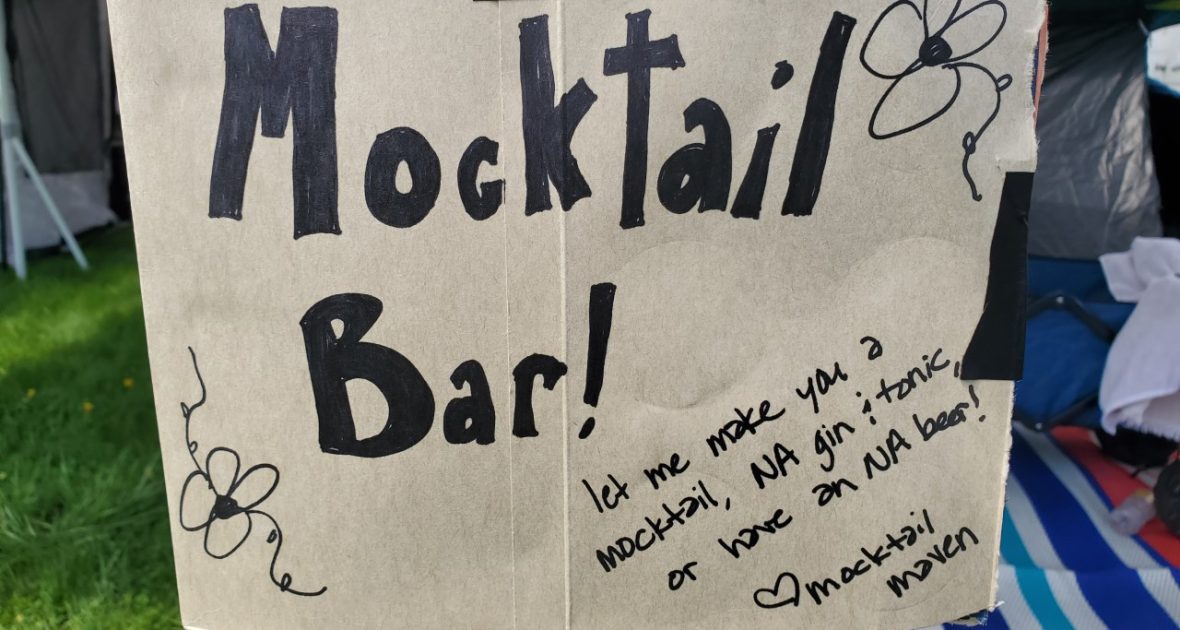 Mocktail
Bar!
let me make you a
mocktail, NA gin & tonic,
or have an NA beer!
♡ mocktail
maven